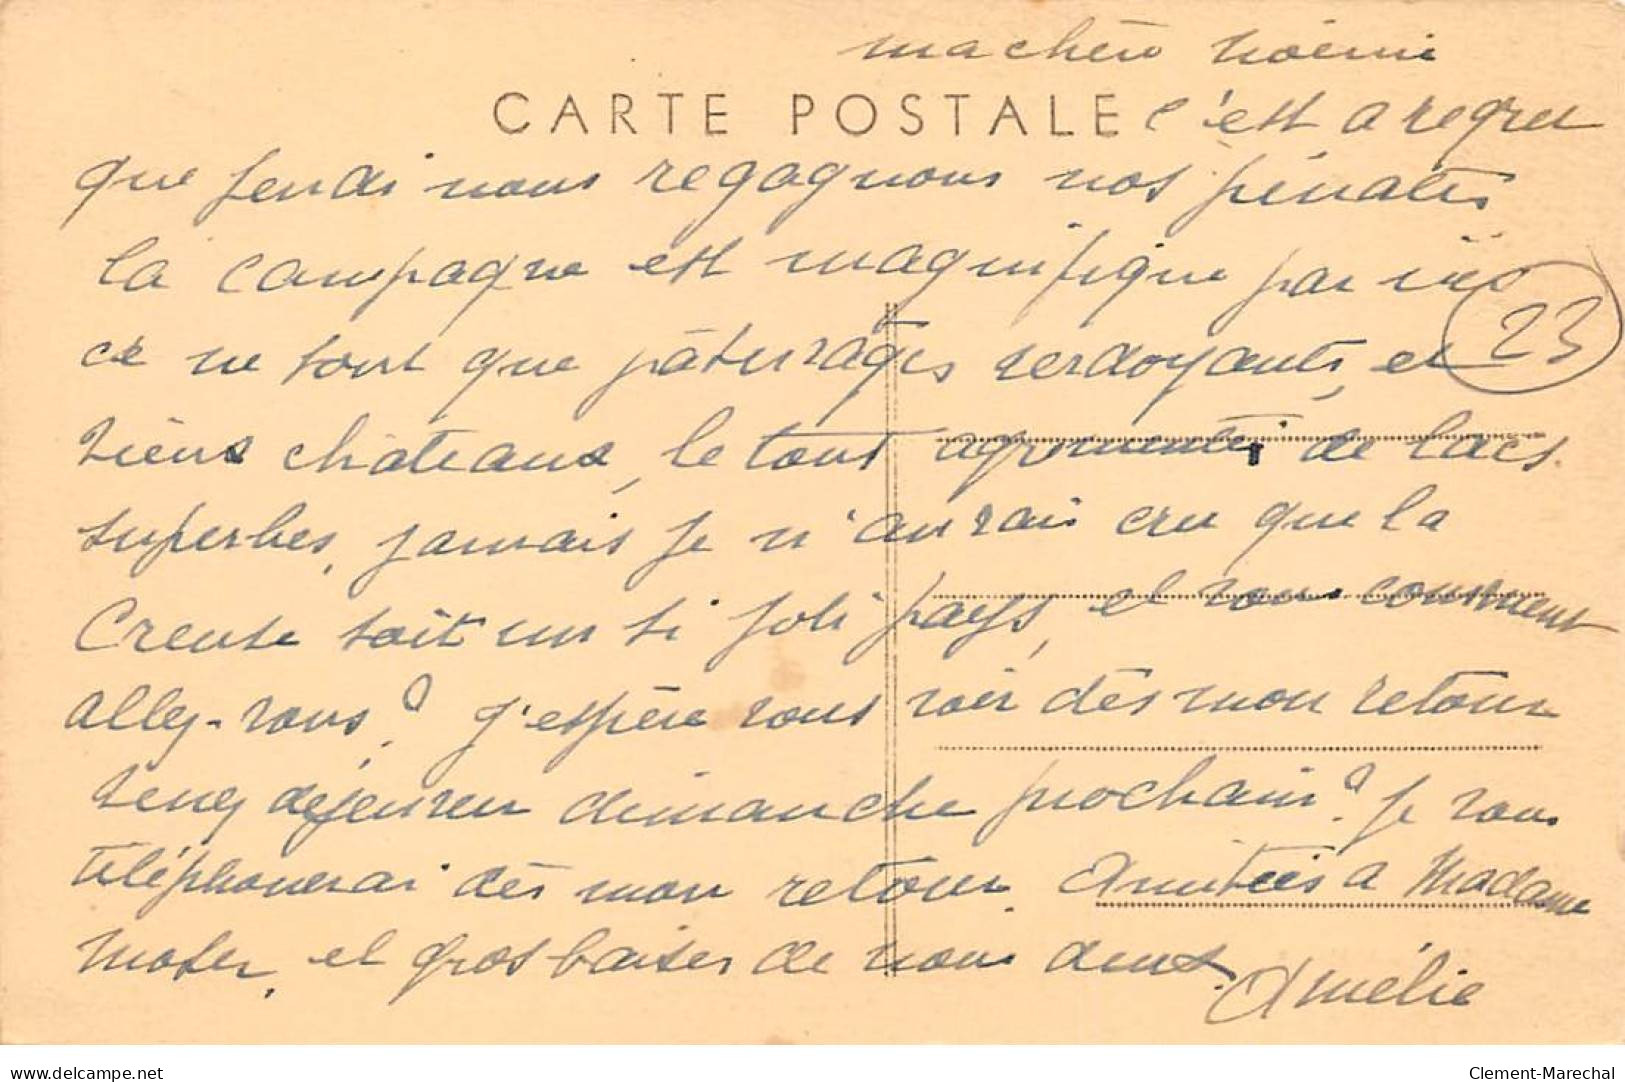 ma chère Noémi
CARTE POSTALE c'est a regret
que jeudi nous regagnons nos pénates
la campagne est magnifique par ici
ce ne sont que pâturages verdoyants, et
23
vieux châteaux, le tout agrémentés de lacs
superbes, jamais je n'aurais cru que la
Creuse soit un si joli pays, et vous comment
allez-vous? J'espère vous voir dès mon retour
venez déjeuner dimanche prochain? Je vous
téléphonerai dès mon retour. Amitiées a Madame
Moser, et gros baiser de nous deux.
Amélie
www.delcampe.net
Clement-Marechal